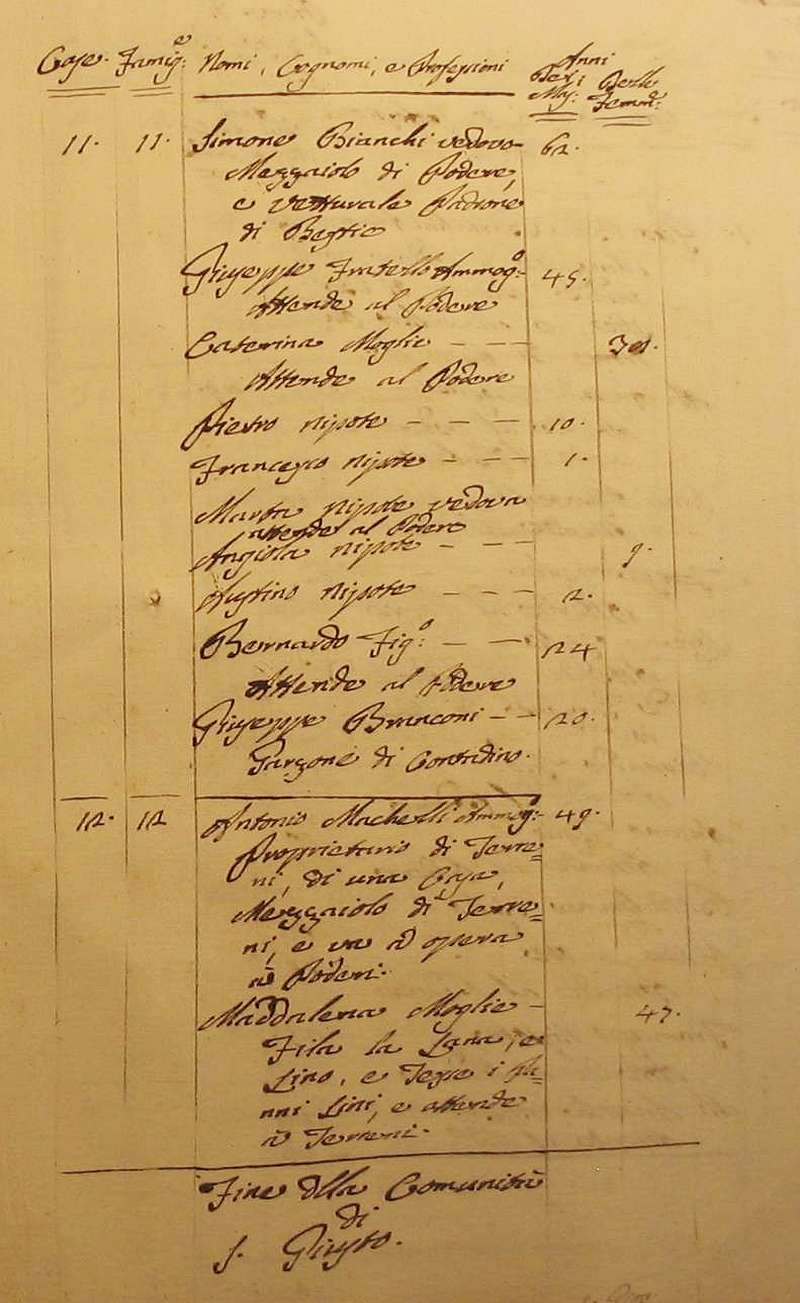 Case. Famig.e Nomi, Cognomi, e Professioni Anni
Delli Mas: Delle Femm:
11. 11. Simone Bianchi vedovo - 62.
Mezzaiolo di Podere,
e Vetturale Padrone
di Bestie
Giuseppe Fratello Ammog.o - 45.
Attende al Podere
Caterina Moglie - - -
Attende al Podere
Pietro nipote - - - 10.
Francesco nipote - - - 1.
Marta nipote vedova
attende al Podere
Angiola nipote - - - 9.
Agstino nipote - - - 2.
Bernardo Fig.o - - 24
Attende al Podere
Giuseppe Branconi - - 20.
Garzone di Contadino.
12. 12 Antonio Machelli Ammog.o - 49.
Proprietario di Terre=
ni, di una Casa,
Mezzaiolo di Terre=
ni, e va à opera
à Poderi.
Maddalena Moglie - 47.
Fila la Lana, e
Lino, e Tesse i pa=
nni Lini, e attende
à Terreni.
Fine della Comunità
di
S. Giusto.